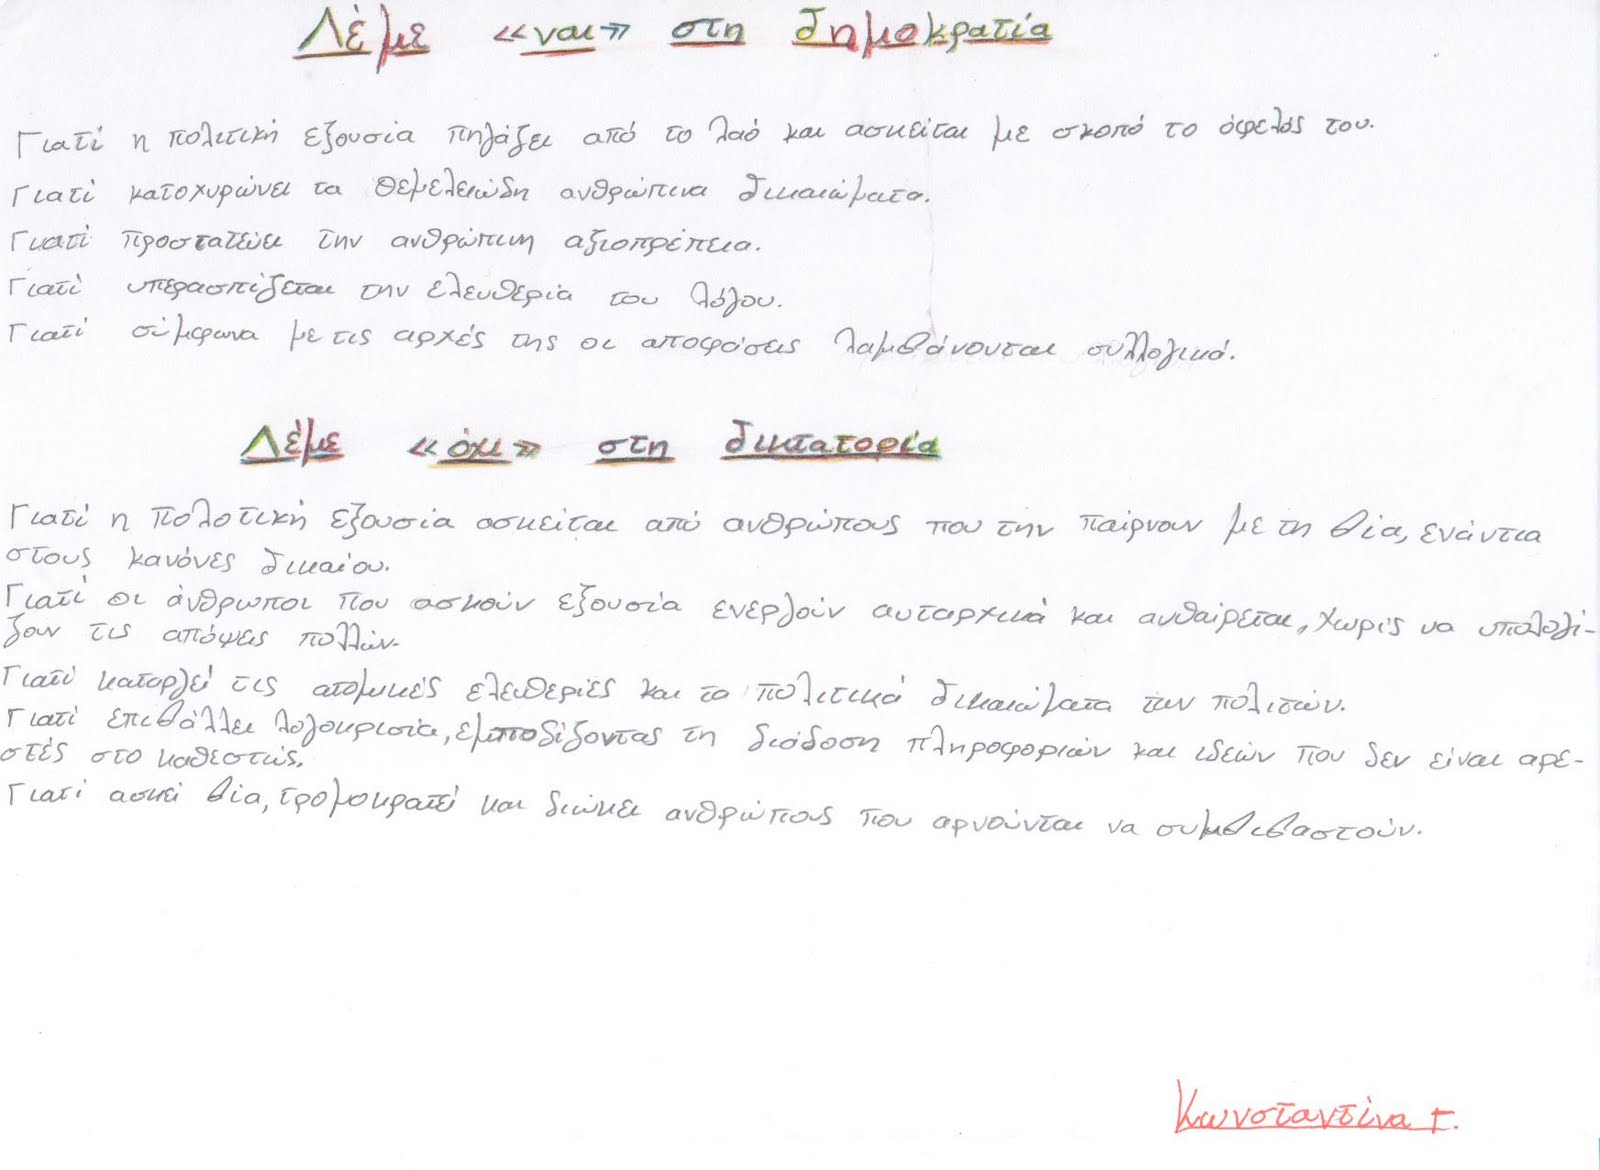 Λέμε «ναι» στη δημοκρατία
Γιατί η πολιτική εξουσία πηγάζει από το λαό και ασκείται με σκοπό το όφελός του.
Γιατί κατοχυρώνει τα θεμελειώδη ανθρώπινα δικαιώματα.
Γιατί προστατεύει την ανθρώπινη αξιοπρέπεια.
Γιατί υπερασπίζεται την ελευθερία του λόγου.
Γιατί σύμφωνα με τις αρχές της οι αποφάσεις λαμβάνουται συλλογικά.
Λέμε «όχι» στη δικτατορία
Γιατί η πολοτική εξουσία ασκείται από ανθρώπους που την παίρνουν με τη βία, ενάντια
στους κανόνες δικαίου.
Γιατί οι άνθρωποι που ασκούν εξουσία ενεργούν αυταρχικά και αυθαίρεται, χωρίς να υπολογί-
ζουν τις απόψεις πολλών.
Γιατί καταργεί τις ατομικές ελευθερίες και τα πολιτικά δικαιώματα των πολιτών.
Γιατί επιβάλλει λογοκρισία, εμποδίζοντας τη διάδοση πληροφοριών και ιδεών που δεν είναι αρε-
στές στο καθεστώς.
Γιατί ασκεί βία, τρομοκρατεί και διώκει ανθρώπους που αρνούνται να συμβιβαστούν.
Κωνσταντίνα Γ.